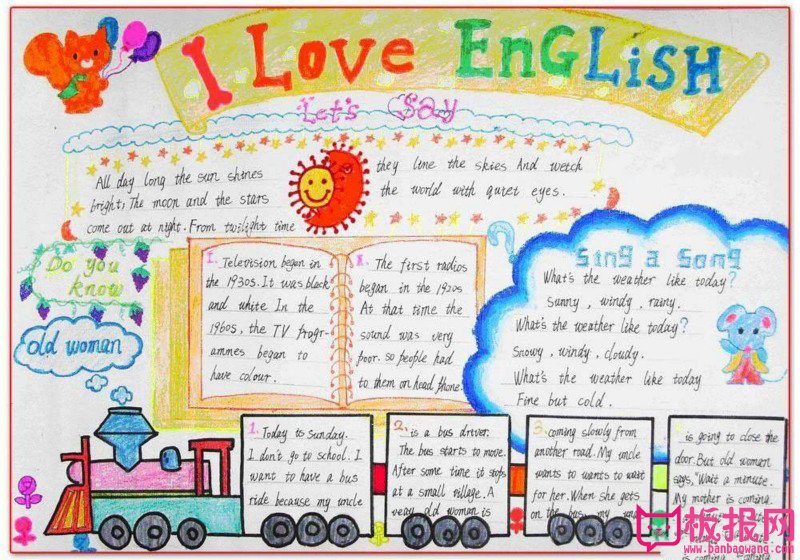 I Love EnGLiSH
Let's Say
All day long the sun shines
bright; The moon and the stars
come out at night. From twilight time
they line the skies And wetch
the world with quiet eyes.
Do you
know
old woman
1. Television began in
the 1930s. It was black
and white In the
1960s, the TV progr-
ammes began to
have colour.
The first radios
began in the 1920s
At that time the
sound was very
poor. so people had
to them on head phone
Sing a Song
What's the weather like today?
Sunny, windy, rainy.
What's the weather like today?
Snowy, windy, cloudy.
What's the weather like today
Fine but cold.
1. Today is Sunday.
I don't go to school. I
want to have a bus
ride because my uncle
2. is a bus driver.
The bus starts to move.
After some time it stops
at a small village. A
very old woman is
3. coming slowly from
another road. My uncle
wants to wants to wait
for her. When she gets
on the bus, my uncle
is going to close the
door. But old woman
says, "Wait a minute.
My mother is coming.
板报网
www.banbaowang.com